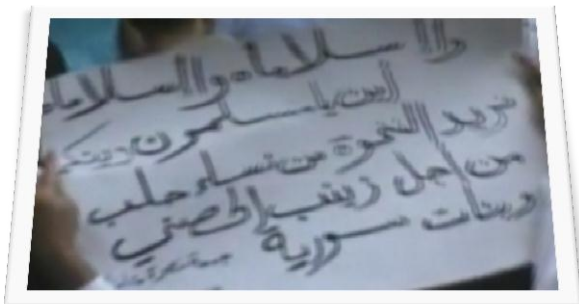 واا سلاماه واالسلاماه
أين يا مسلمون دينكم
نريد النخوة من نساء حلب
من اجل زينب الحصني
وبنات سورية